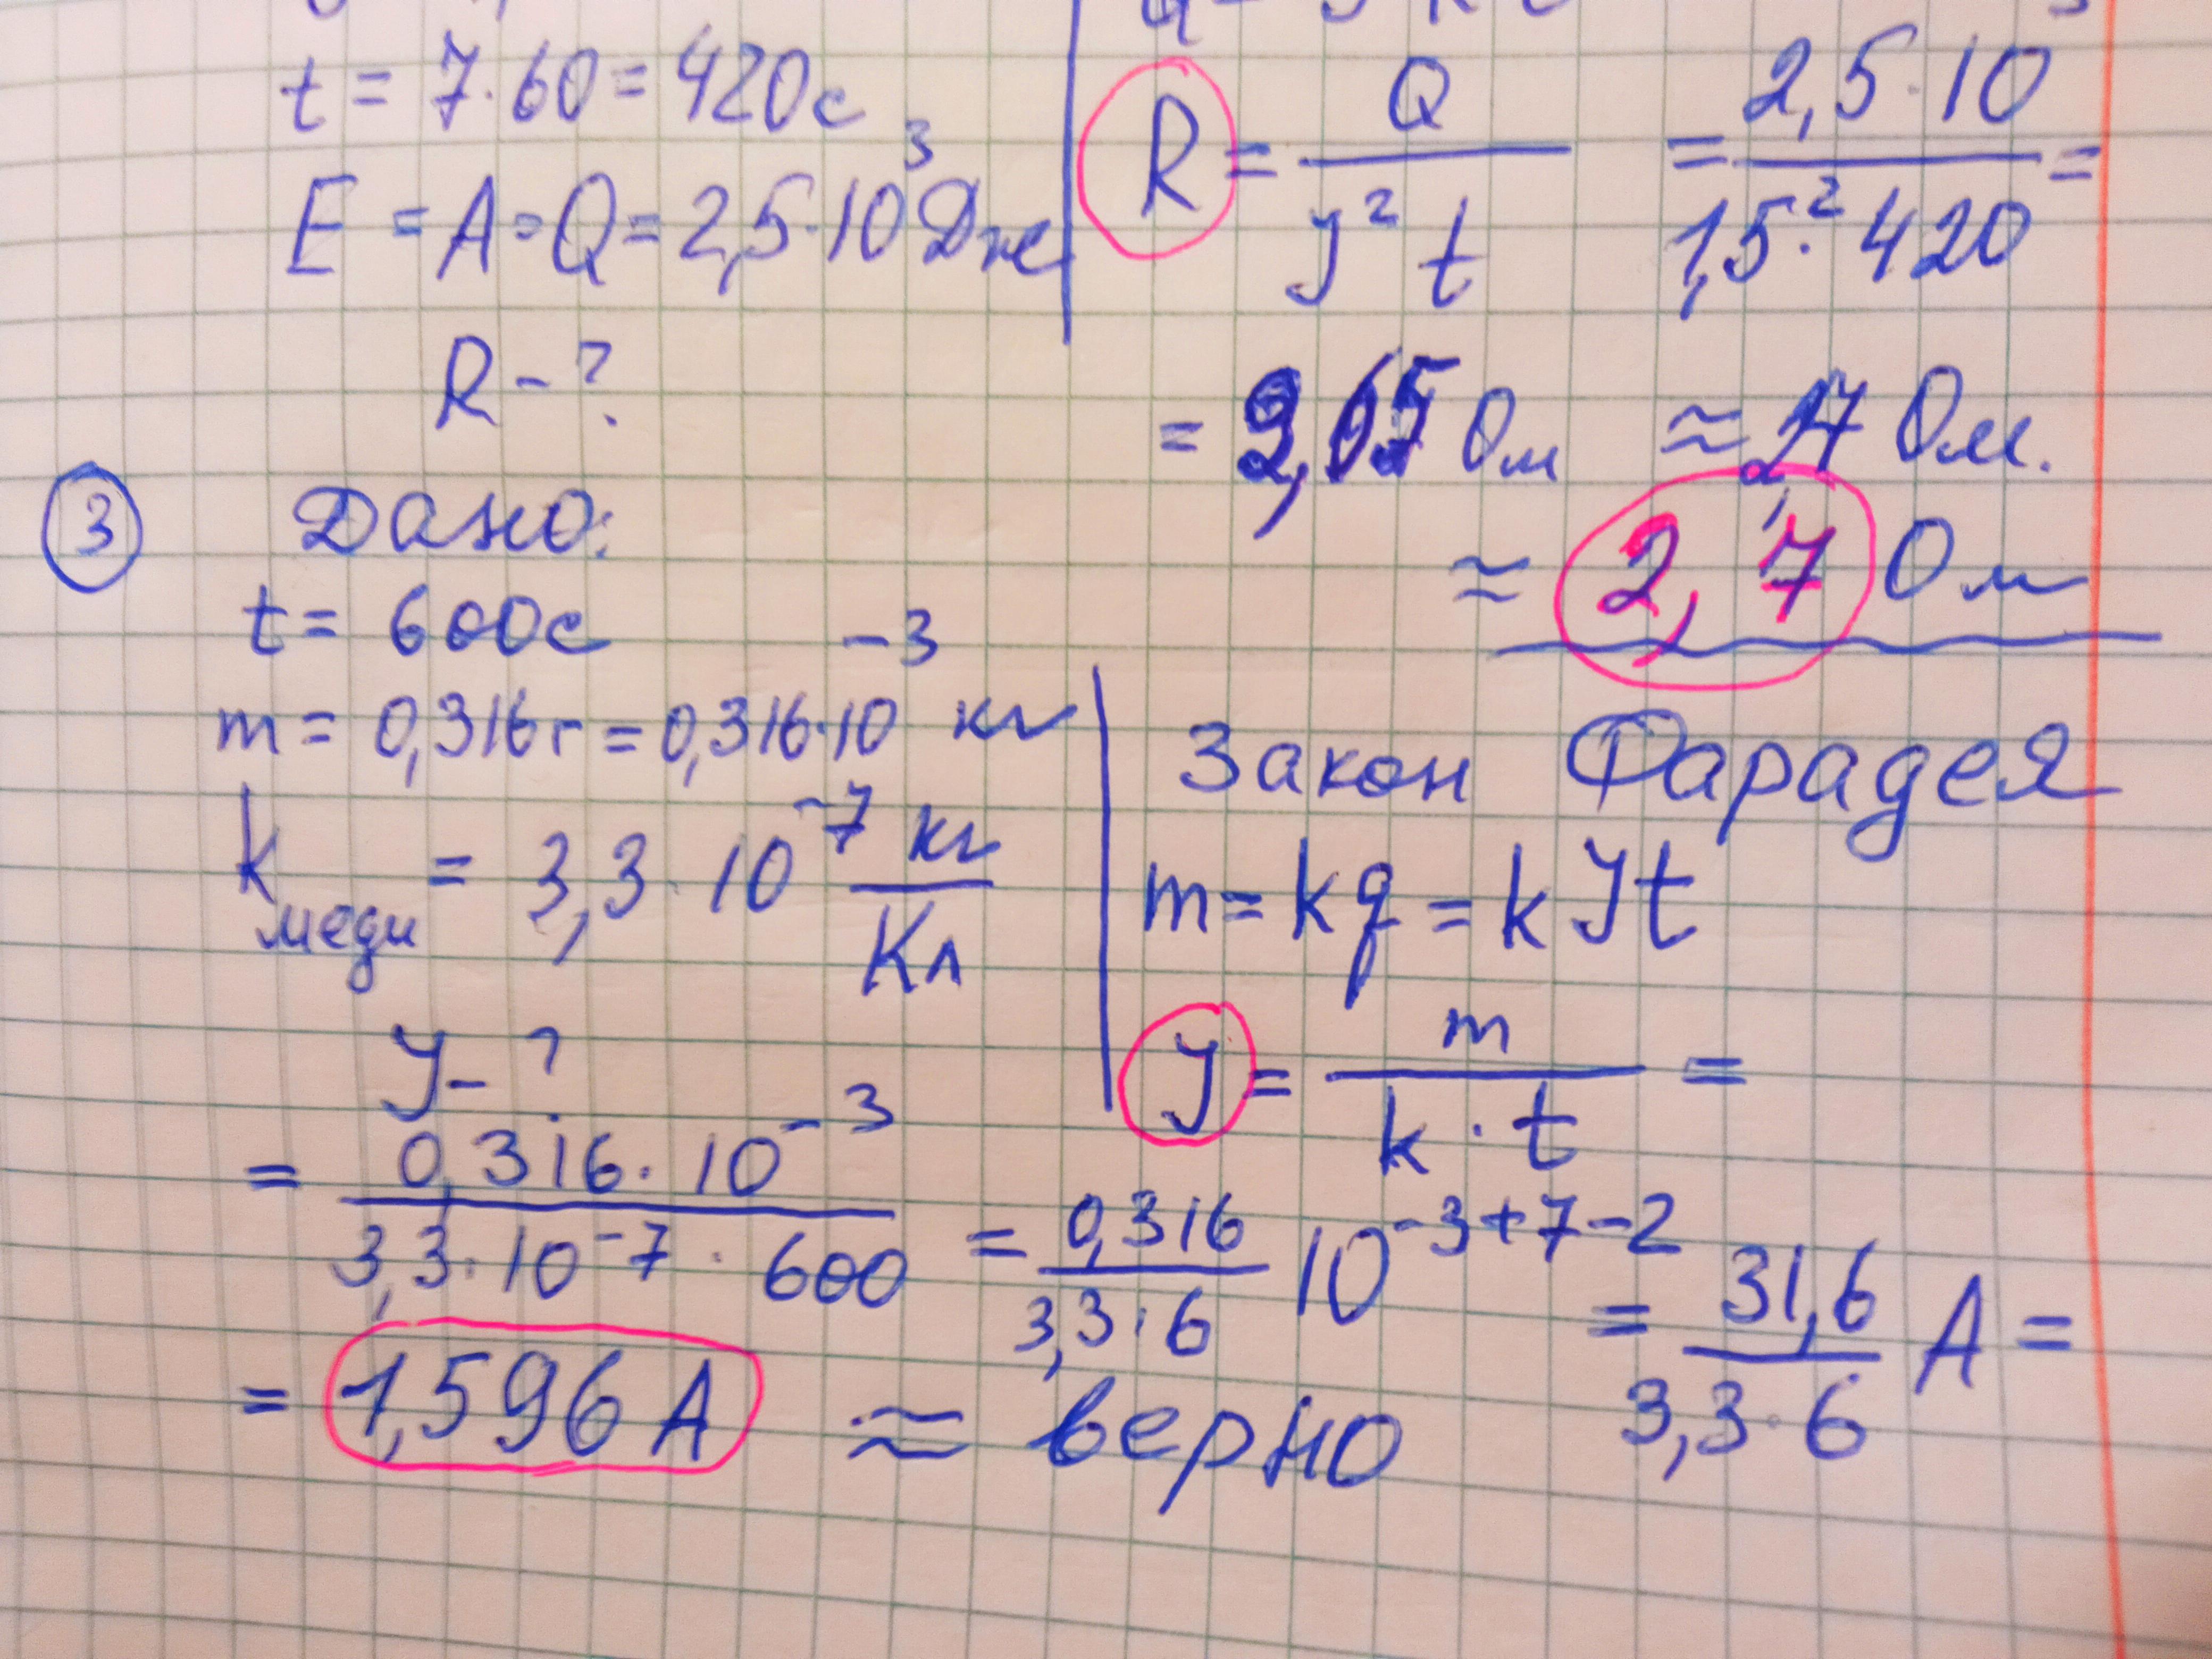 t = 7·60 = 420с
E = A = Q = 2,5·10³ Дж
R - ?
R = Q / J² t = 2,5·10³ / 1,5²·420 =
= 2,65 Ом ≈ 2,7 Ом.
≈ 2,7 Ом
③ Дано:
t = 600с
m = 0,316г = 0,316·10⁻³ кг
k меди = 3,3·10⁻⁷ кг / Кл
J - ?
Закон Фарадея
m = kq = kJt
J = m / k·t =
= 0,316·10⁻³ / 3,3·10⁻⁷·600 = 0,316 / 3,3·6 10⁻³⁺⁷⁻² = 31,6 / 3,3·6 А =
= 1,596 А ≈ верно